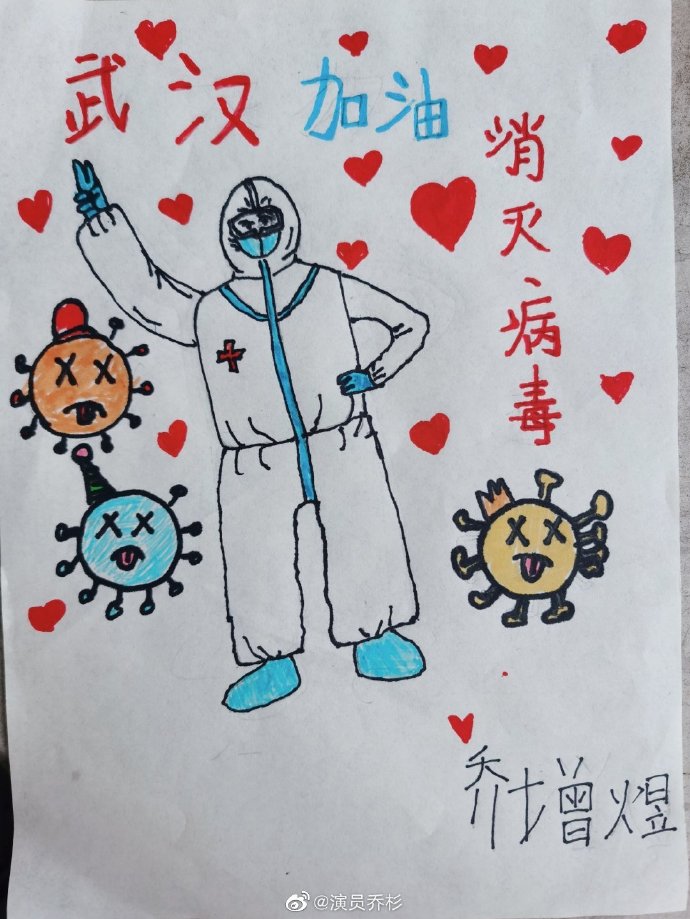 武汉加油
消灭病毒
乔增煜
@演员乔杉